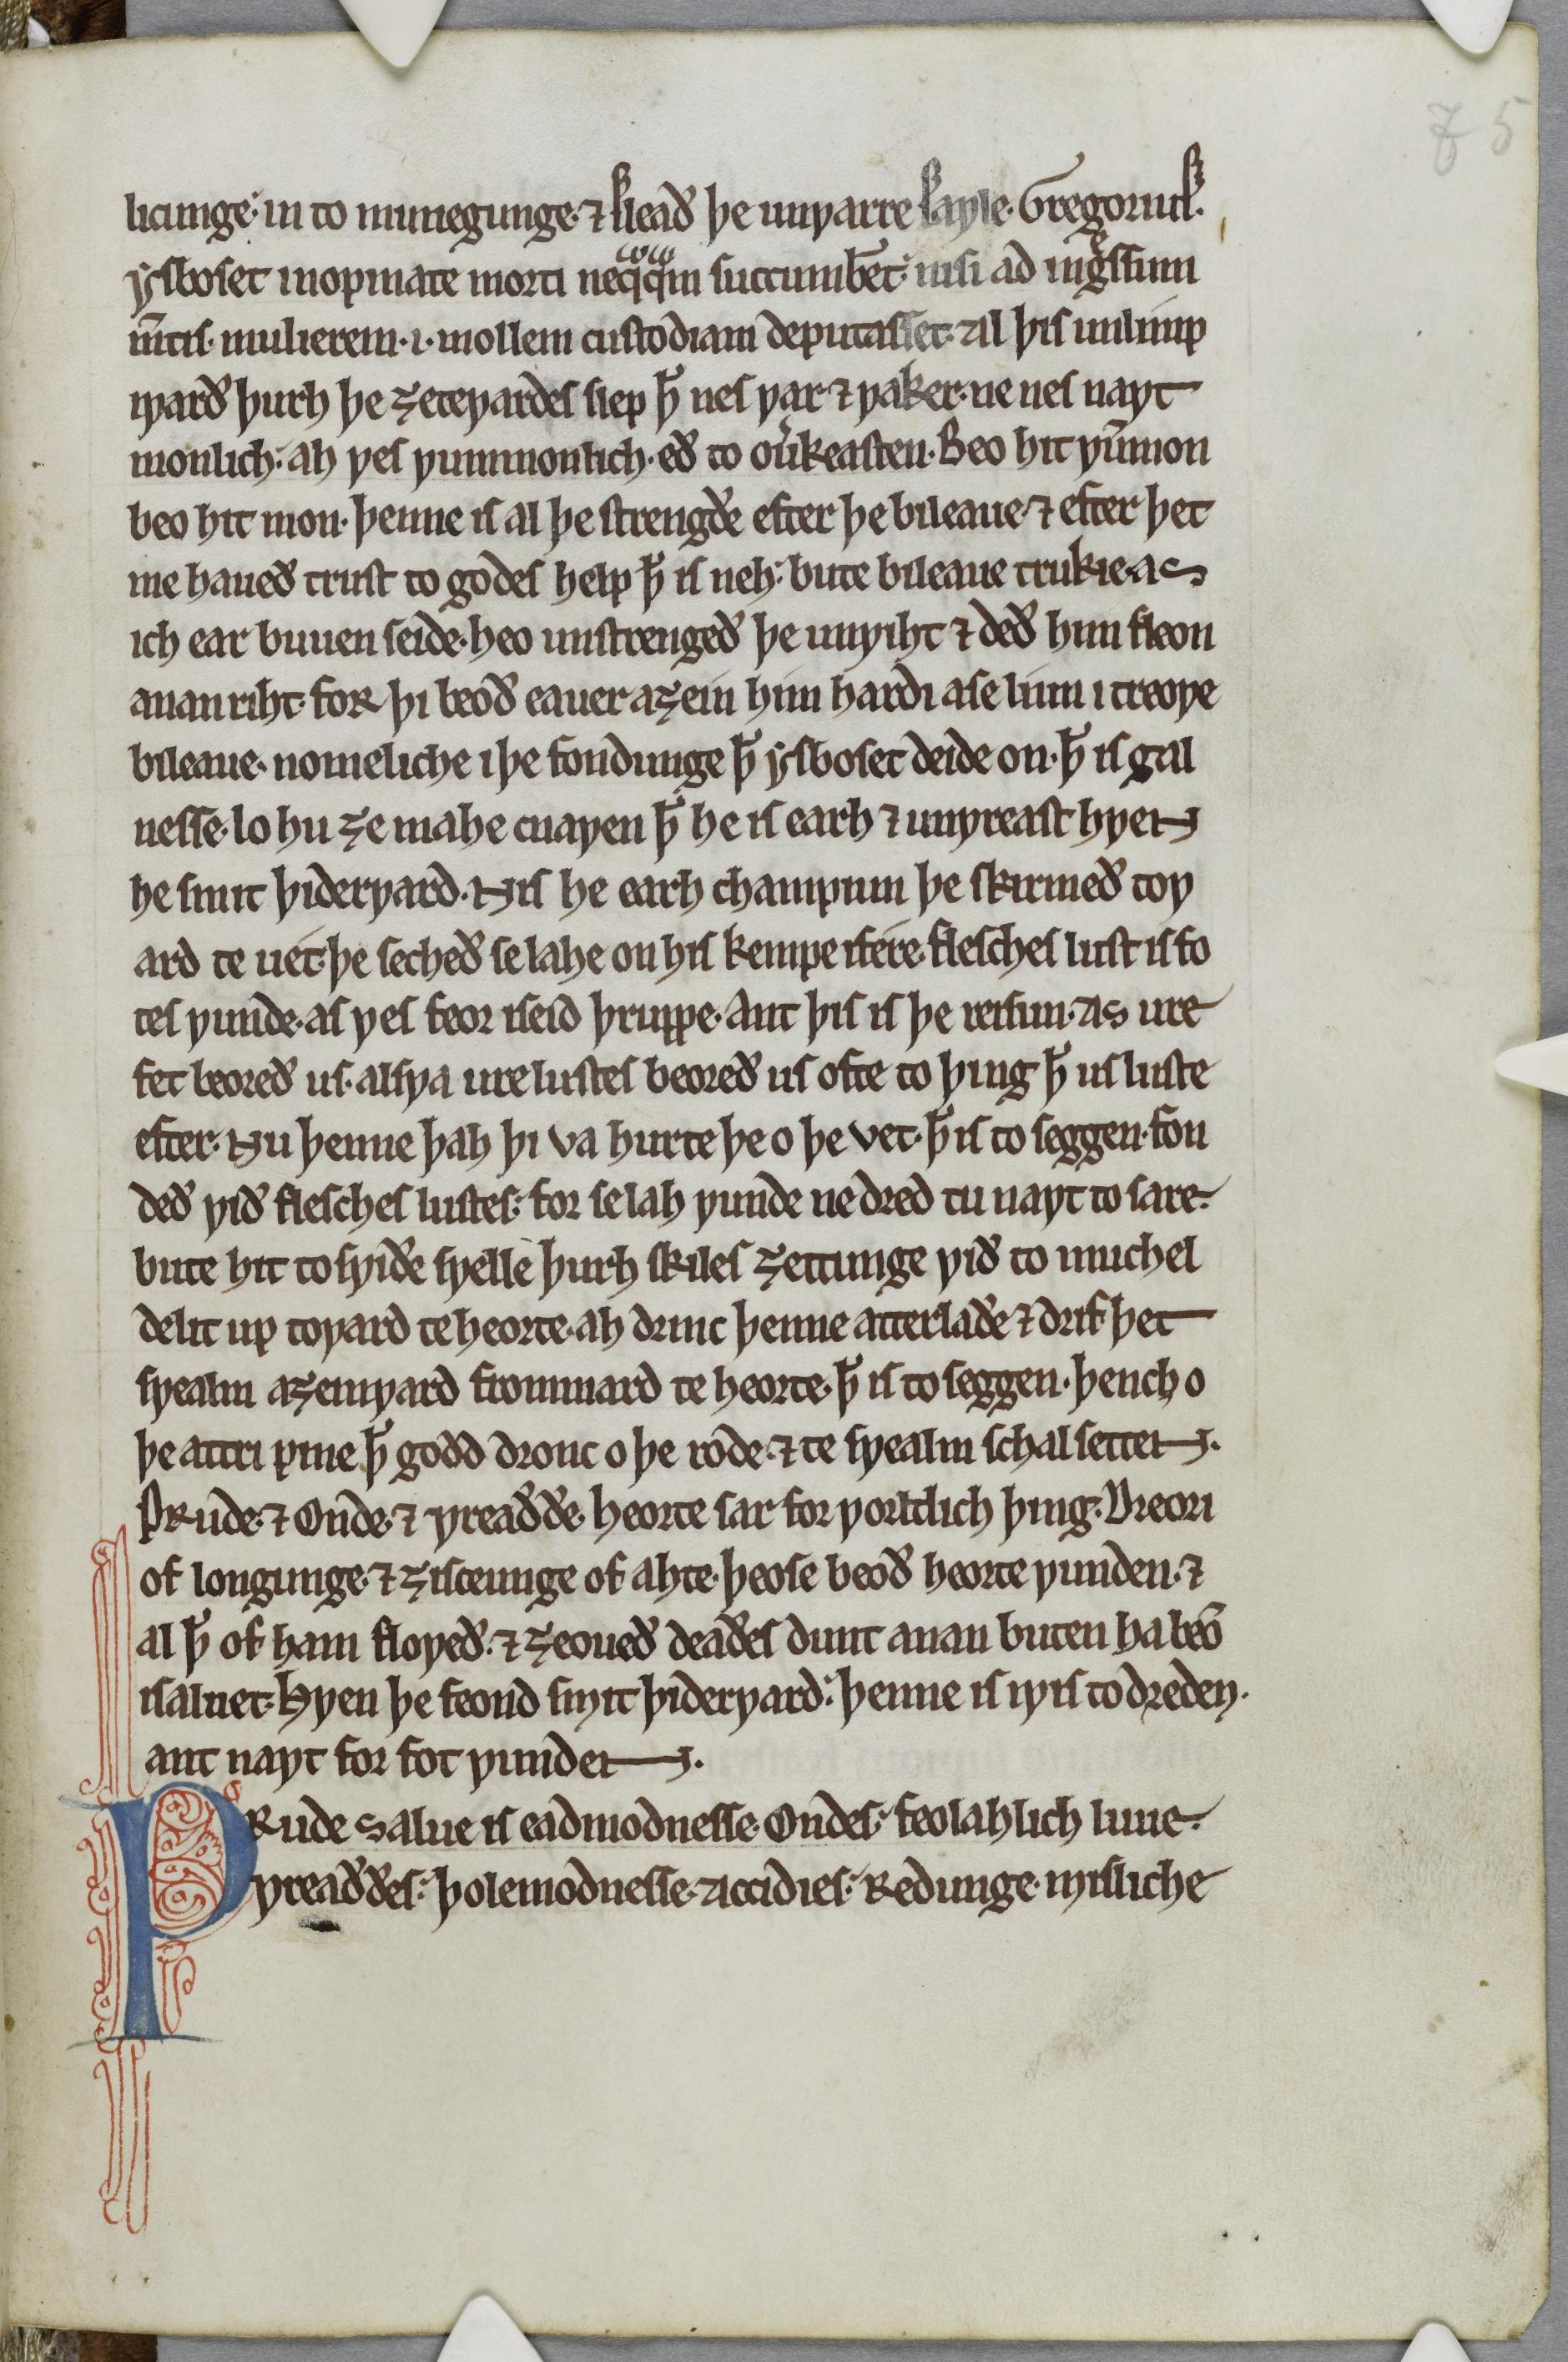 75
licunge. in to munegunge. ⁊ sleað þe unƿarre saƿle. Gregorius.
ẏsboset inopinate morti neqͣqͣm succumbēt. nisi ad ingͤssum
m̄tis. mulierem .i. mollem custodiam deputasset. Al þis unlimp
iƿarð þurh þe ȝeteƿardes slep ꝥ nes ƿar ⁊ ƿaker. ne nes naƿt
monlich. ah ƿes ƿummonlich. eð to ou̓keasten. Beo hit ƿūmon
beo hit mon. þenne is al þe strengðe efter þe bileaue. ⁊ efter þet
me haueð trust to godes help ꝥ is neh. bute bileaue trukie. As
ich ear buuen seide. heo unstrengeð þe unƿiht ⁊ deð him fleon
ananriht. for þi beoð eauer aȝein him hardi ase liun i treoƿe
bileaue. nomeliche i þe fondunge ꝥ ẏsboset deide on. ꝥ is gal
nesse. lo hu ȝe mahe cnaƿen ꝥ he is earh ⁊ unƿreast hƿen
he smit þiderƿard. Nis he earh champiun þe skirmeð toƿ
ard te uet. þe secheð se lahe on his kempe ifere. flesches lust is fo
tes ƿunde. as ƿes feor iseid þruppe. Ant þis is þe reisun. As ure
fet beoreð us. alsƿa ure lustes beoreð us ofte to þing ꝥ us luste
efter. Nu þenne þah þi va hurte þe o þe vet. ꝥ is to seggen. fon
deð ƿið flesches lustes. for se lah ƿunde ne dred tu naƿt to sare.
bute hit to sƿiðe sƿelle þurh skiles ȝettunge ƿið to muchel
delit up toƿard te heorte. ah drinc þenne atterlaðe ⁊ drif þet
sƿealm aȝeinƿard frommard te heorte. ꝥ is to seggen. þench o
þe attri pine ꝥ godd dronc o þe rode. ⁊ te sƿealm schal setten.
Prude. ⁊ Onde. ⁊ ƿreaððe. heorte sar for ƿorltlich þing. Dreori
of longunge. ⁊ ȝisceunge of ahte. þeose beoð heorte ƿunden. ⁊
al ꝥ of ham floƿeð. ⁊ ȝeoueð deaðes dunt anan buten ha beō
isaluet. Hƿen þe feond smit þiderƿard. þenne is iƿis to dreden.
ant naƿt for fot ƿunden.
PRude salue is eadmodnesse. Ondes. feolahlich luue.
ƿreaððes. þolemodnesse. Accidies. Redunge. misliche